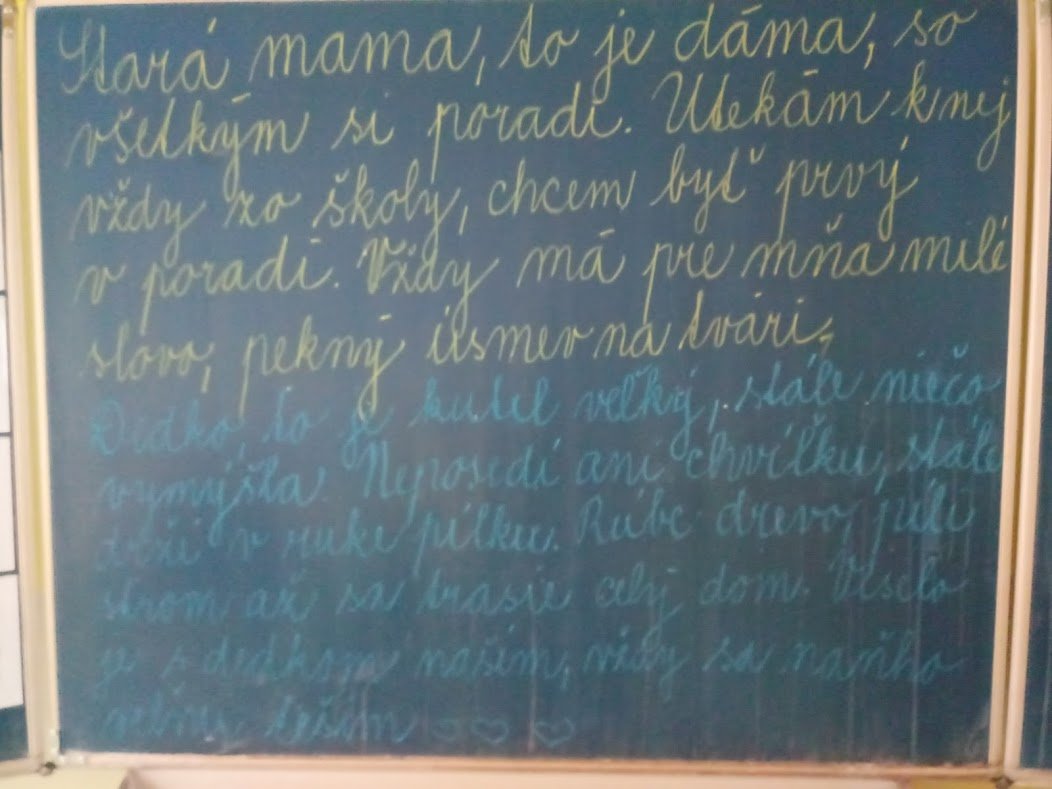 Stará mama, to je dáma, so
všetkým si poradí. Utekám k nej
vždy zo školy, chcem byť prvý
v poradí. Vždy má pre mňa milé
slovo, pekný úsmev na tvári,
Dedko, to je kutil veľký, stále niečo
vymýšľa. Neposedí ani chvíľku, stále
drží v ruke pílku. Rúbe drevo, píli
strom až sa trasie celý dom. Veselo
je s dedkom naším, vždy sa naňho
veľmi teším ♡♡♡